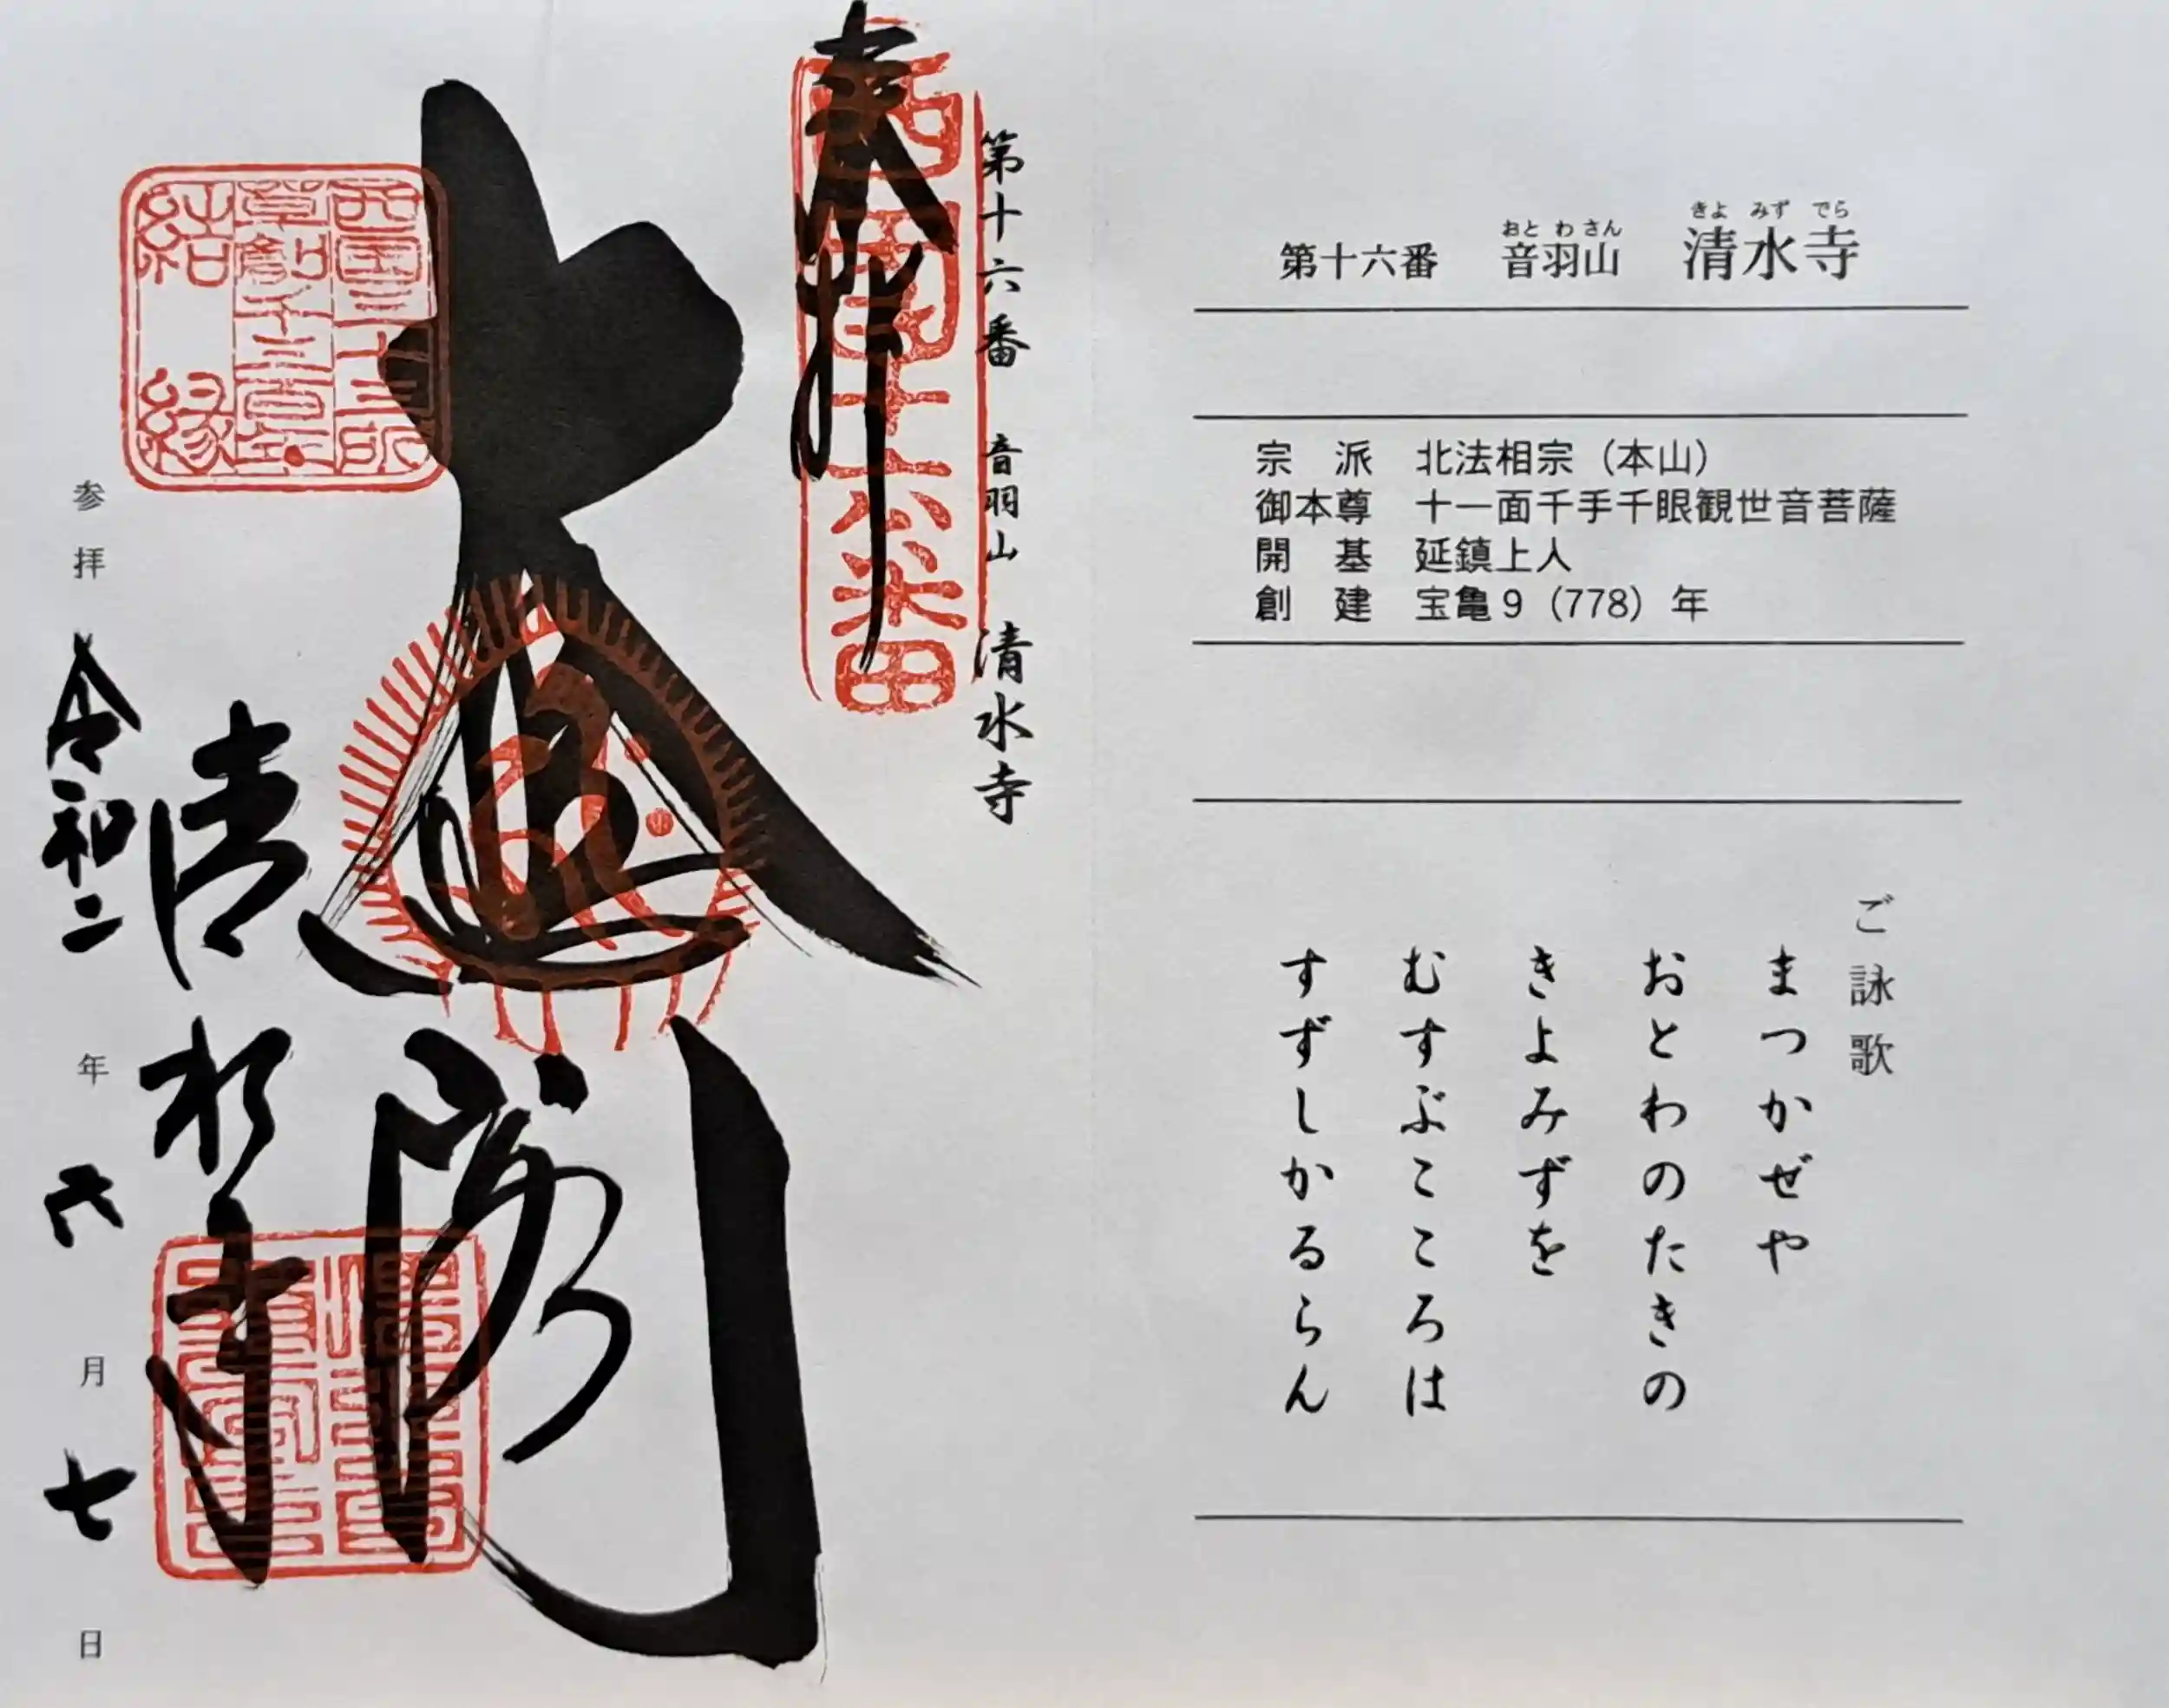 第十六番 音羽山 清水寺
おとわさん きよみずでら
宗派 北法相宗（本山）
御本尊 十一面千手千眼観世音菩薩
開基 延鎮上人
創建 宝亀9（778）年
ご詠歌
まつかぜや
おとわのたきの
きよみずを
むすぶこころは
すずしかるらん
第十六番 音羽山 清水寺
奉拝
西国十六番
大悲閣
西国三十三所
草創千三百年
結縁
清水寺
参拝 令和二年 六月 七日